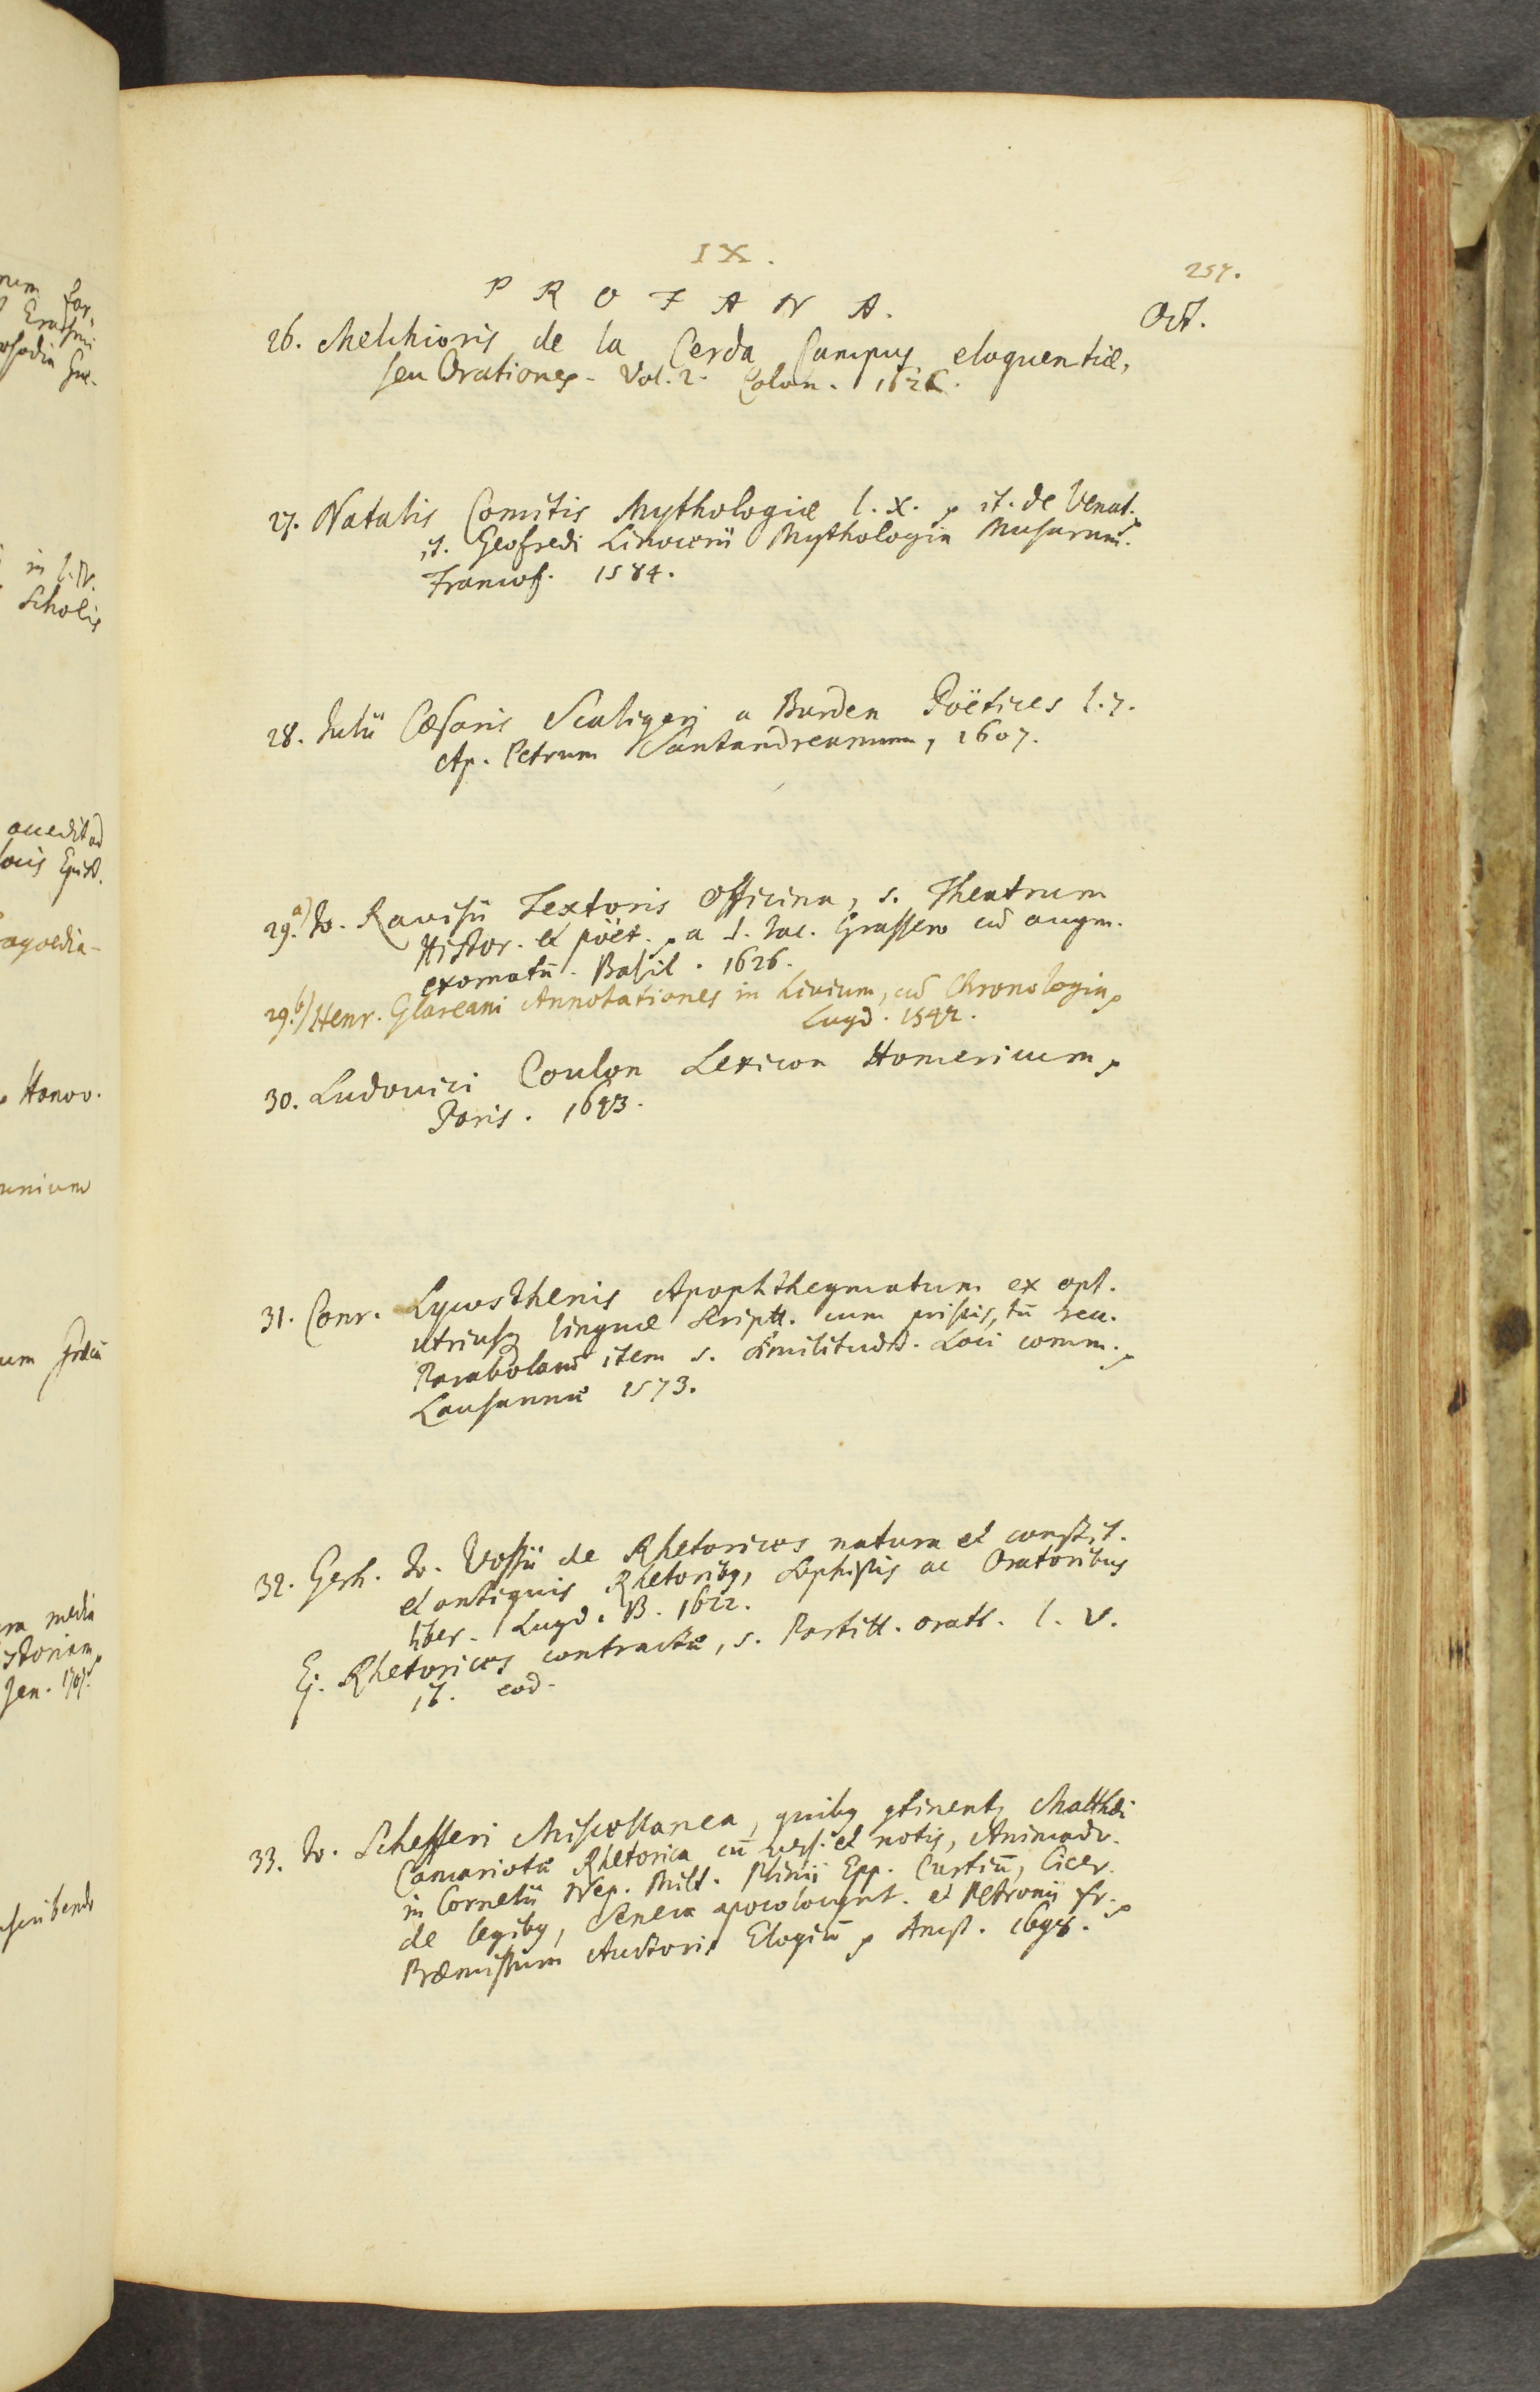 IX.
257.
PROFANA.
Oct.
26. Melchioris de la Cerda Campus eloquentiæ,
seu Orationes. Vol. 2. Colon. 1626.
27. Natalis Comitis Mythologiæ l. X. p it. de Venat.
it. Geofredi Linocerii Mythologia Musarum.
Francof. 1584.
28. Julii Cæsaris Scaligeri a Burden Poëtices l. 7.
Ap. Petrum Santandreanum, 1607.
29. a) Jo. Ravisii Textoris Officina, s. Theatrum
Histor. et poët. p a J. Jac. Grassero cū augm.
exornatū. Basil. 1626.
29. b) Henr. Glareani Annotationes in Livium, cū Chronologia p
Lugd. 1542.
30. Ludovici Coulon Lexicon Homericum p
Paris. 1643.
31. Conr. Lycosthenis Apophthegmatum ex opt.
utriusq linguæ Scriptt. cum priscis, tū rec.
Parabolarū item s. Similitudd. Loci comm. p
Lausannæ 1573.
32. Gerh. Jo. Vossii de Rhetorices natura et constit.
et antiquis Rhetoribq, Sophistis ac Oratoribus
liber. Lugd. B. 1622.
Ej. Rhetorices contractæ, s. Partitt. oratt. l. V.
it. eod.
33. Jo. Schefferi Miscellanea, quibq gtinentz Matthæi
Camariotæ Rhetorica cū vers. et notis, Animadv.
in Corneliū Nep. Milt. Plinii Epp. Curtiū, Cicer.
de legibq, Senecæ apocolocynt. et Petronii fr. p
Præmissum Auctoris Elogiū p Amst. 1698.
in l. IV.
Scholis
accedit ad
Epist.
Hanov.
media
Jen. 1707.